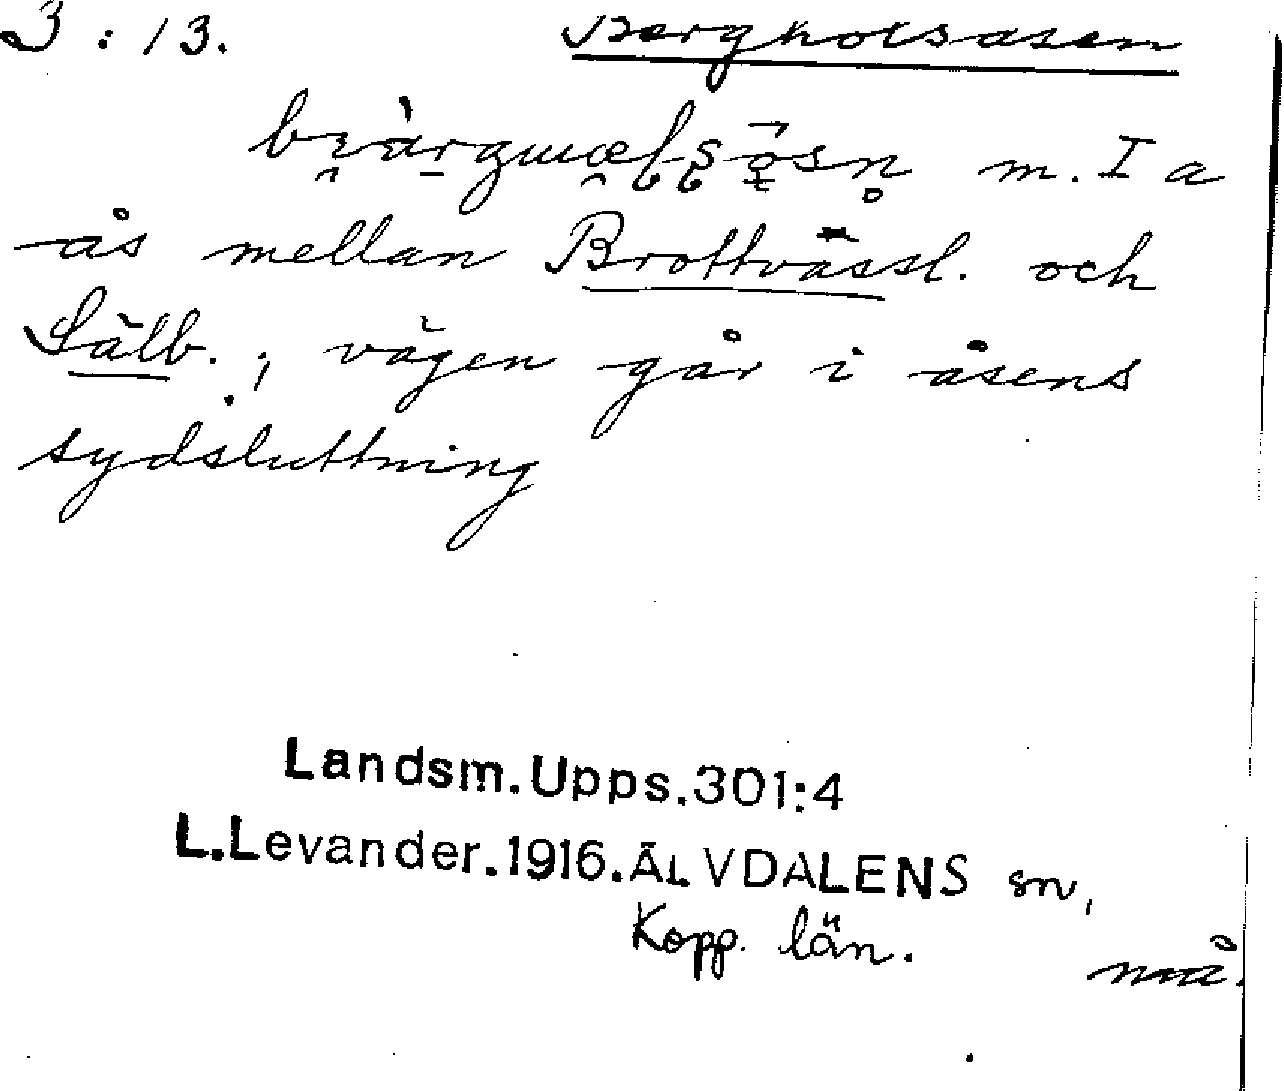 3:13. Bergholsåsen
m. I a
ås mellan Brottvässl. och
Sälb.; vägen går i åsens
sydsluttning
Landsm.Upps.301:4
L.Levander.1916.ÄLVDALENS sn,
Kopp. län.